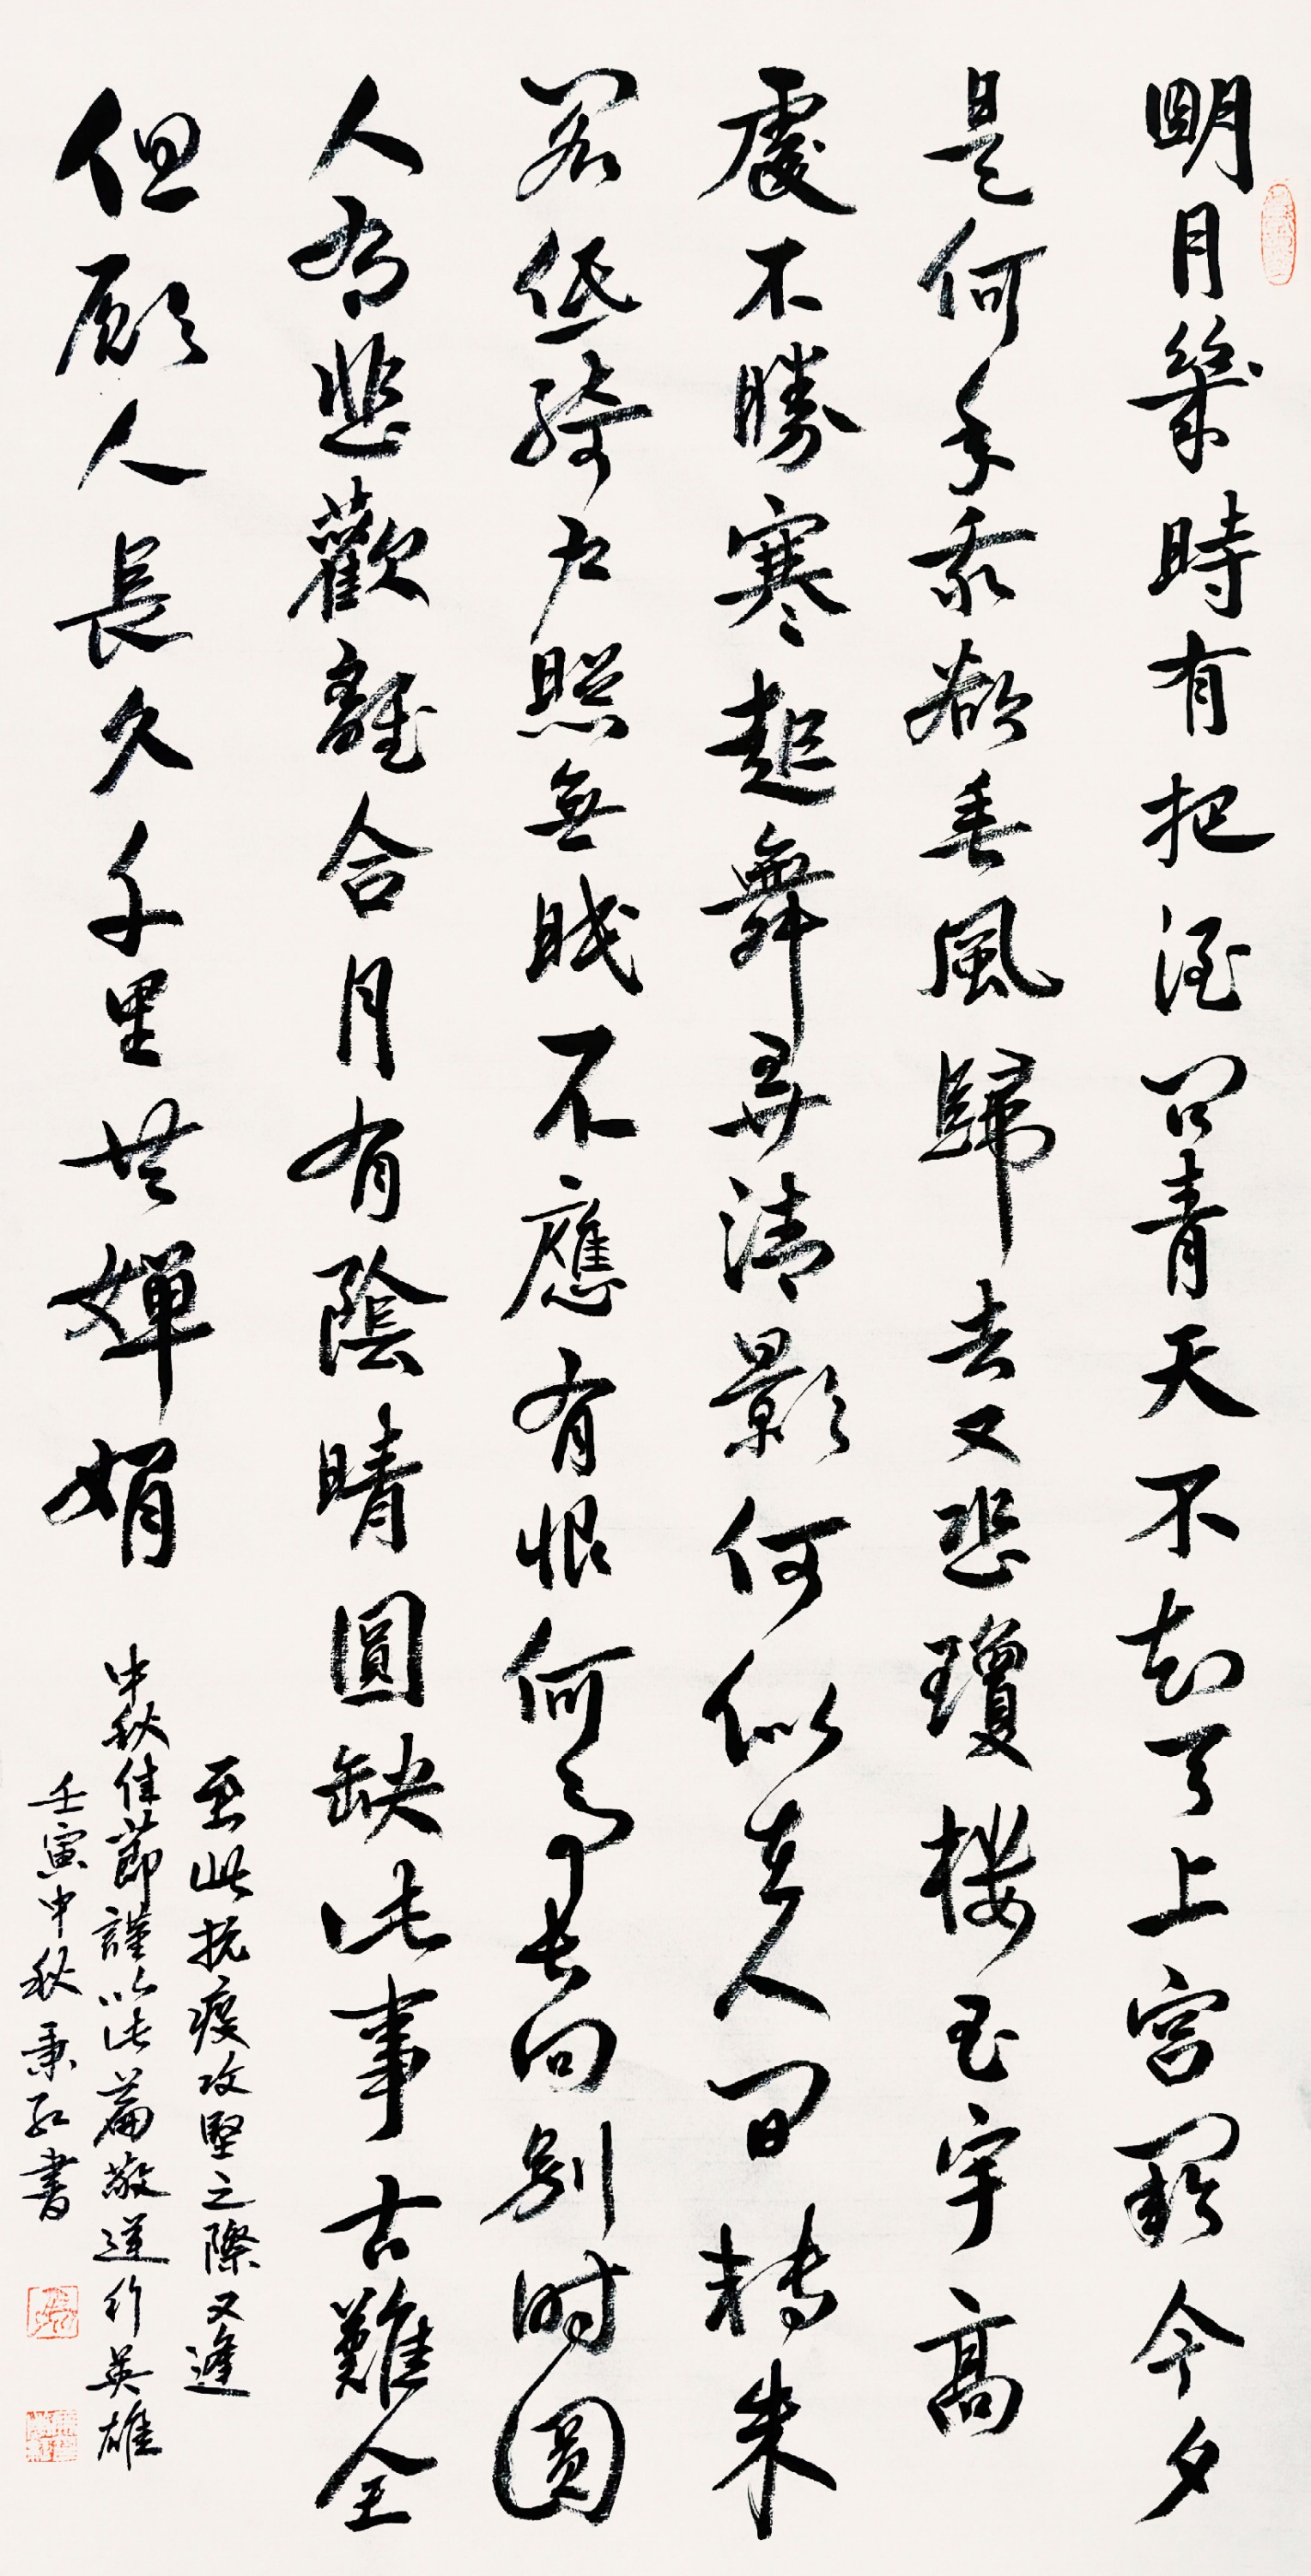 明月幾時有把酒問青天不知天上宮闕今夕
是何年我欲乘風歸去又恐瓊樓玉宇高
處不勝寒起舞弄清影何似在人間轉朱
閣低綺户照無眠不應有恨何事長向別时圓
人有悲歡離合月有陰晴圓缺此事古難全
但願人長久千里共嬋娟
至此抗疫攻堅之際又逢
中秋佳節謹以此篇敬逆行英雄
壬寅中秋秉紅書